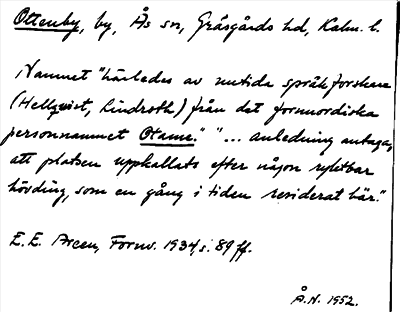 Ottenby, by, Ås sn, Gräsgårds hd, Kalm. l.
Namnet "härledes av nutida språkforskare
(Hellquist, Lindroth) från det fornnordiska
personnamnet Otame." "... anledning antaga,
att platsen uppkallats efter någon ryktbar
hövding, som en gång i tiden residerat här."
E. E. Areen, Fornv. 1934, s. 89 ff.
Å.N. 1952.